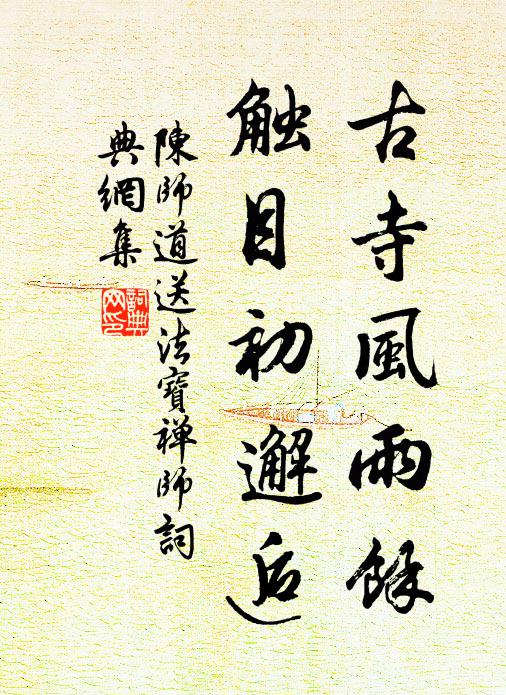 古寺風雨餘
触目初邂逅
陳師道送法寶禅師詞
典網集
詞典网印